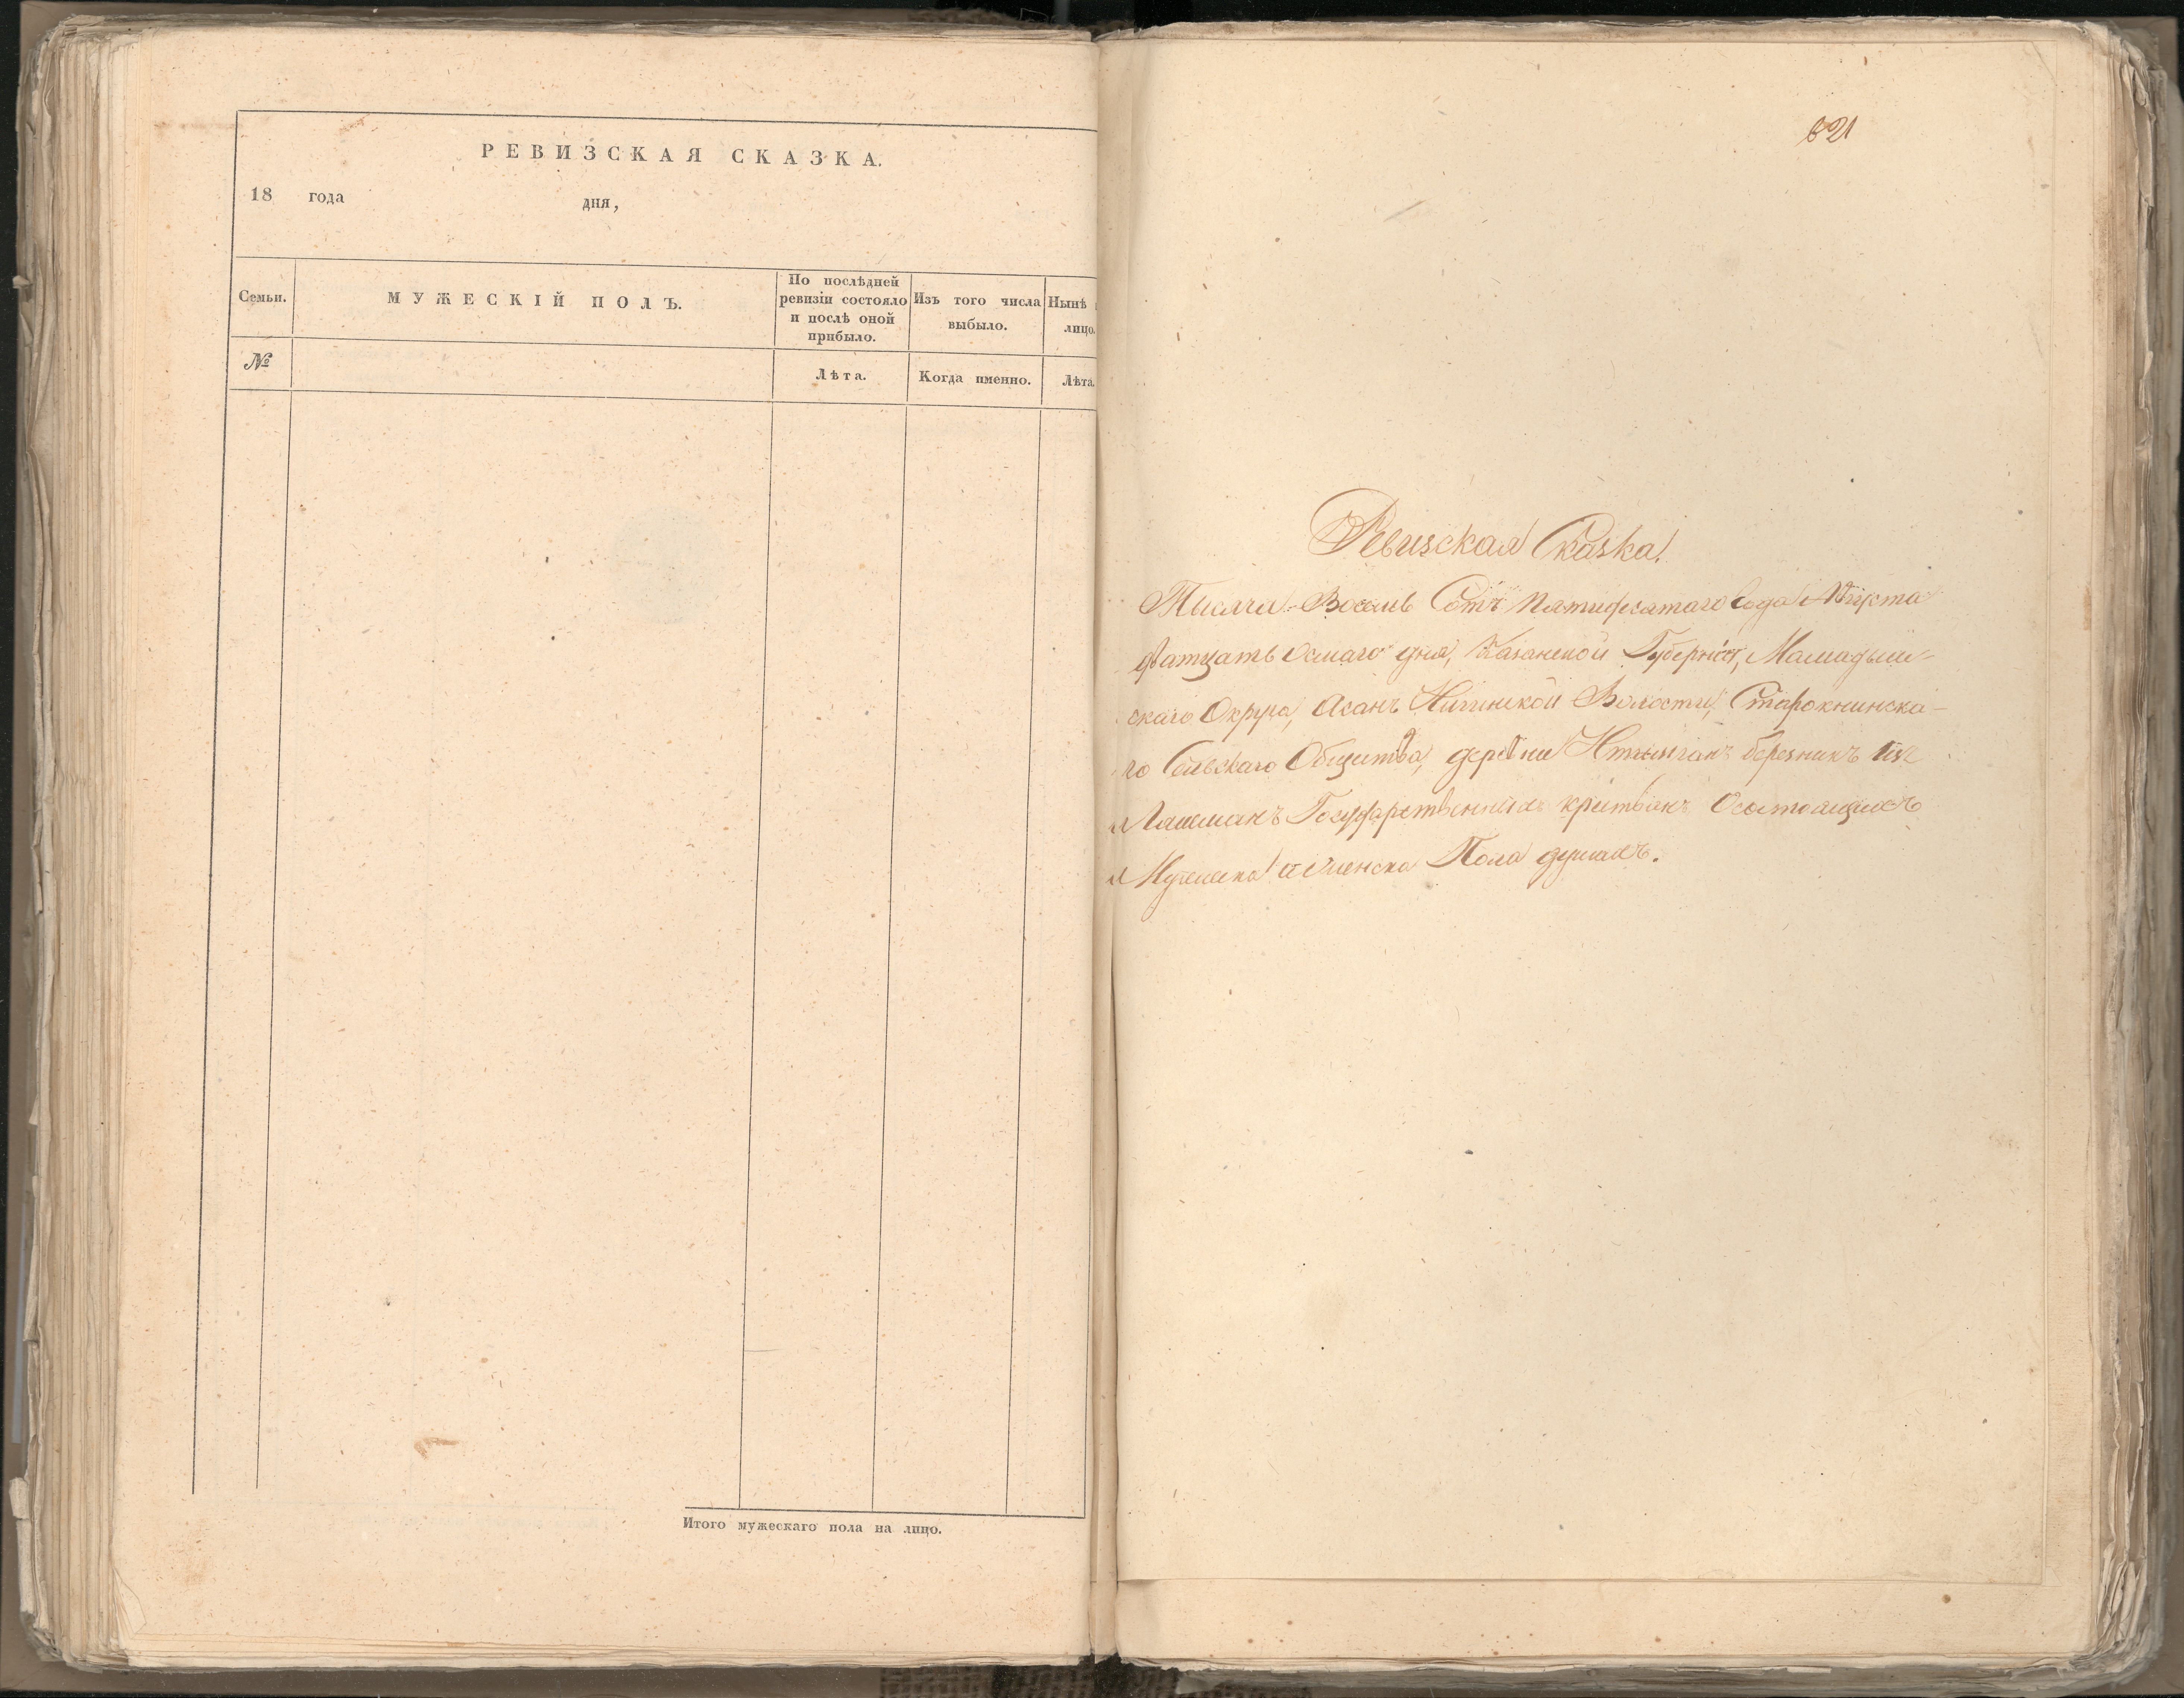 РЕВИЗСКАЯ СКАЗКА.
18 года дня,
Семьи.
МУЖЕСКІЙ ПОЛЪ.
По послѣдней
ревизіи состояло
и послѣ оной
прибыло.
Изъ того числа
выбыло.
Нынѣ
лицо.
№
Лѣта.
Когда именно.
Лѣта.
Итого мужескаго пола на лицо.
621
Ревизская Сказка.
Тысяча Восемь Сотъ пятидесятаго года Августа
дватцать осмаго дня, Казанской Губерніи, Мамадыш-
скаго Округа, Асанъ Волости, Старокнинска-
го Сельскаго Общества, деревни березникъ
Лашманъ Государственныхъ состоящихъ
Мужеска и женска Пола душахъ.